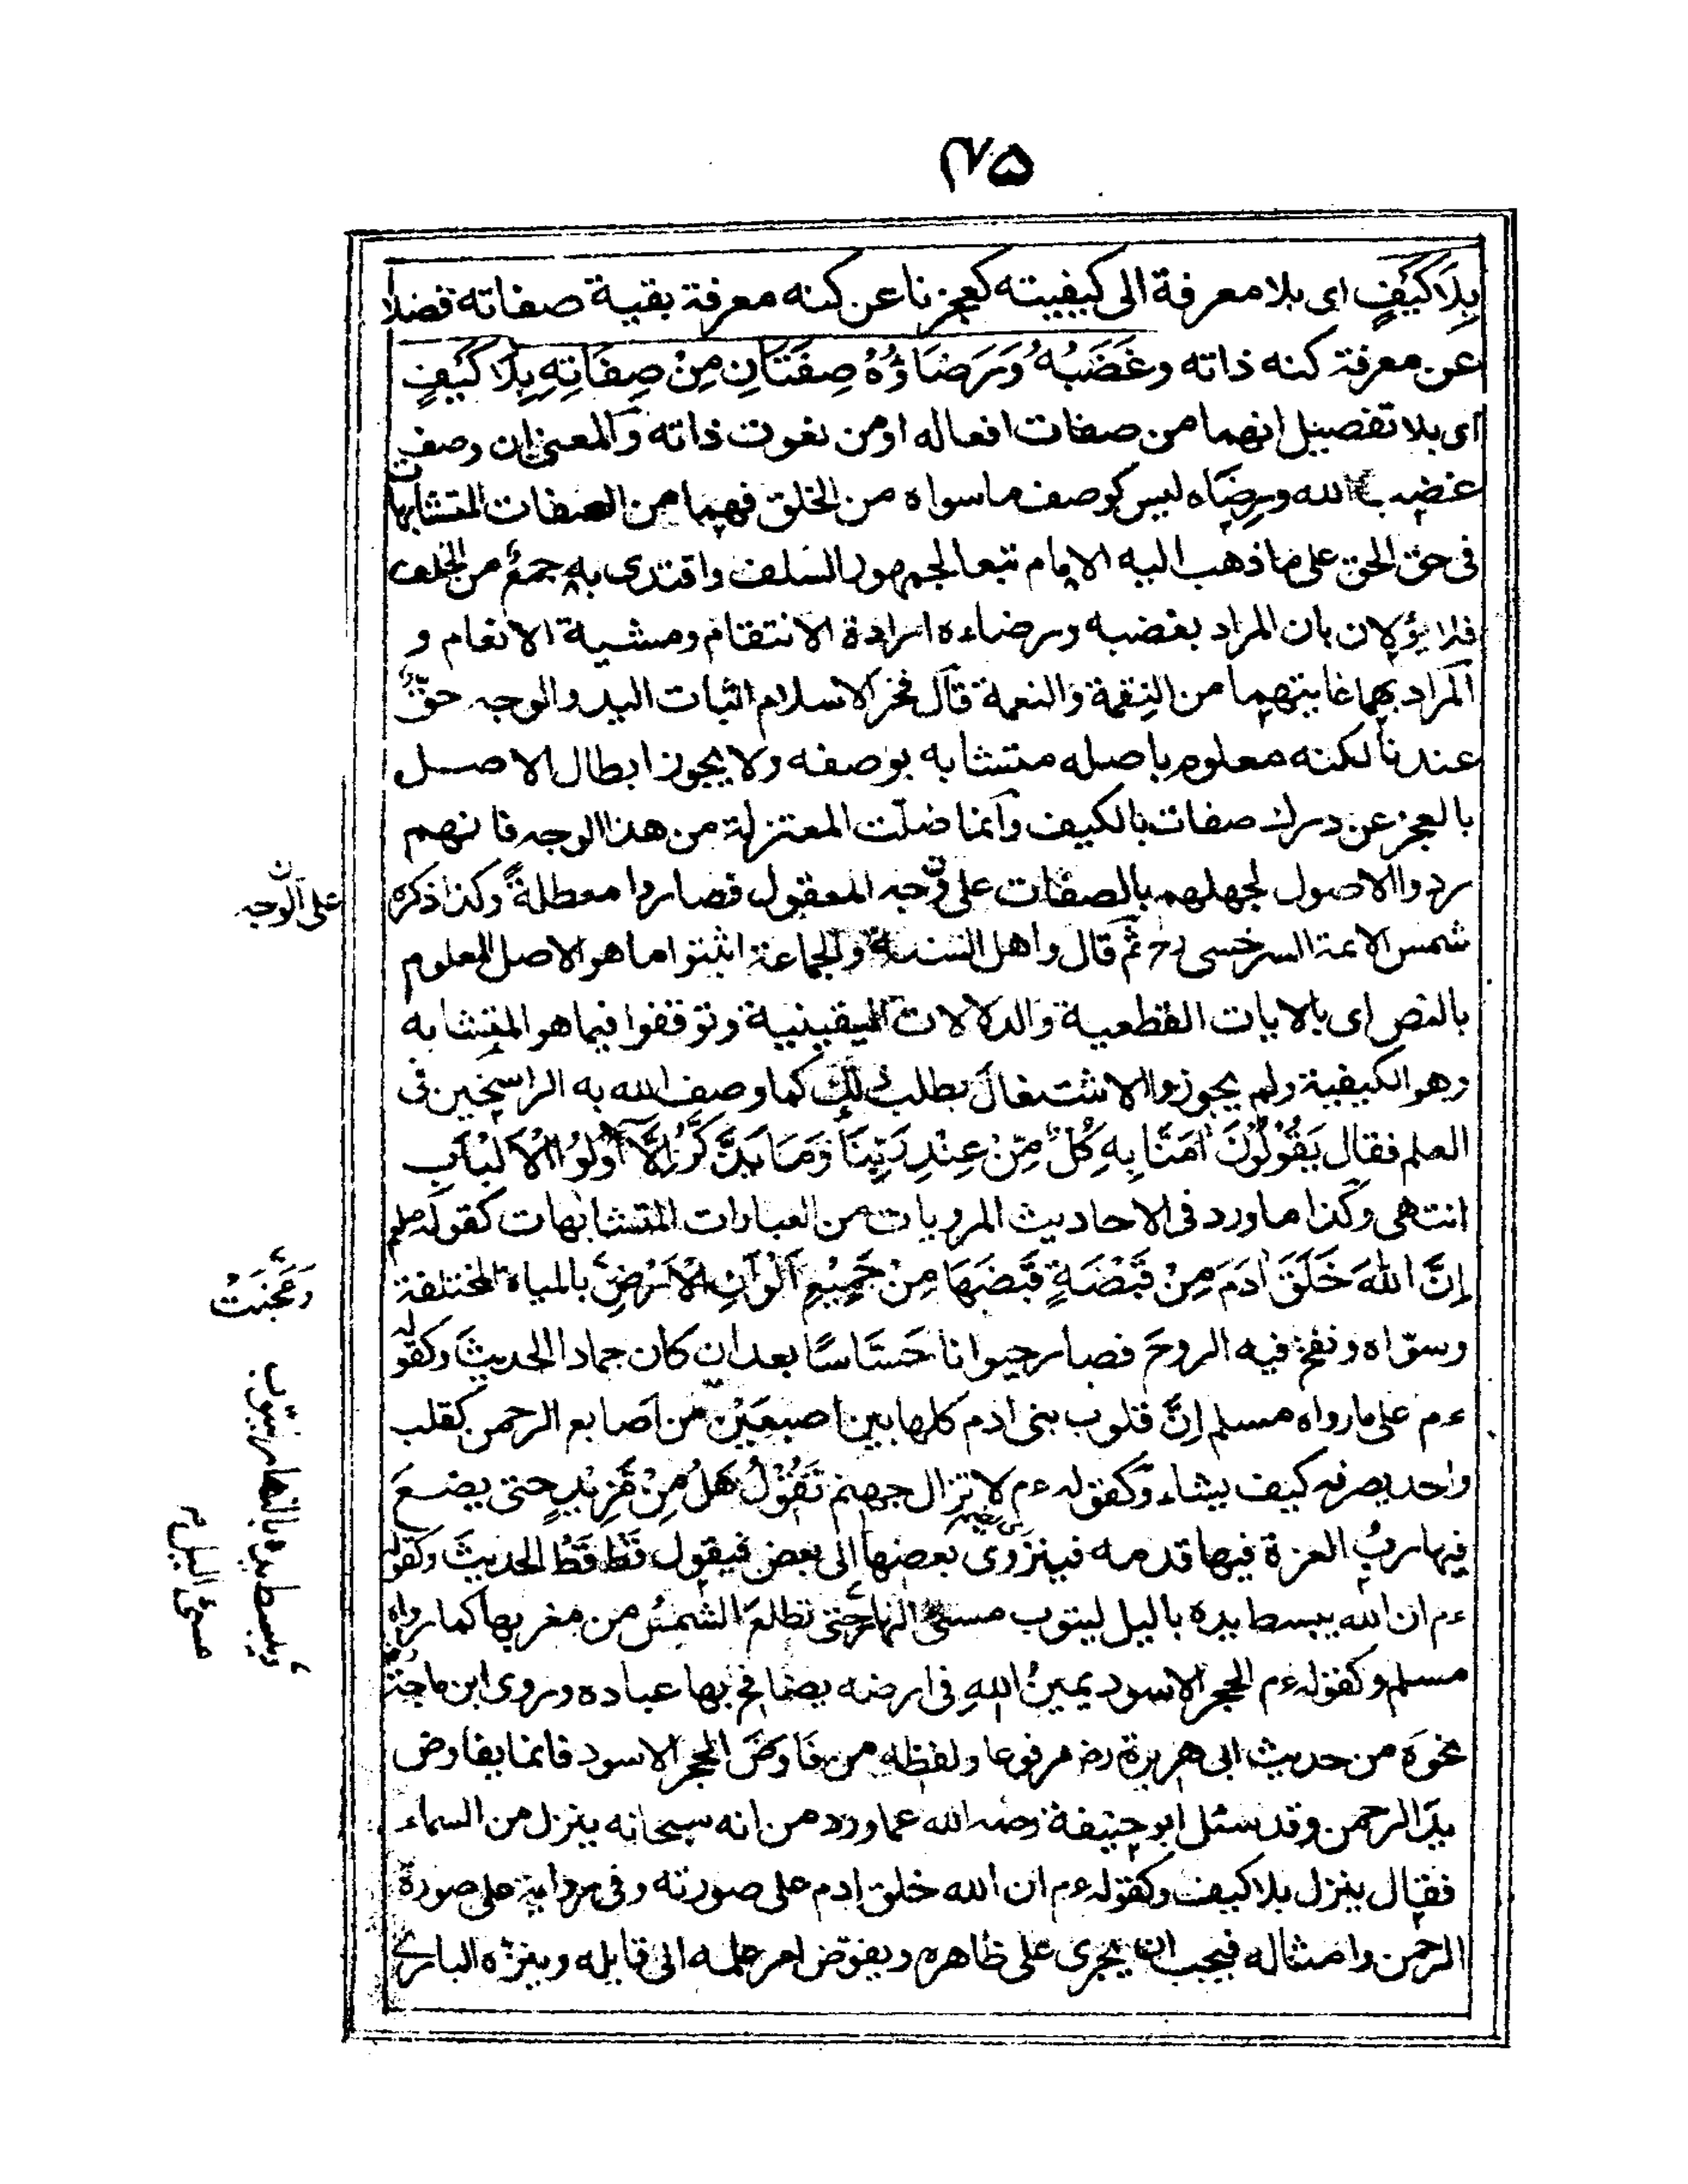 ٤٥
بِلَا كَيْفٍ اى بلا معرفة الى كيفيته كعجزنا عن كنه معرفة بقية صفاته فضلا
عن معرفة كنه ذاته وغَضَبُهُ وَرَضَاؤُهُ صِفَتَانِ مِنْ صِفَاتِهِ بِلَا كَيْفٍ
اى بلا تفصيل انهما من صفات افعاله او من نعوت ذاته والمعنى ان وصف
غضب الله ورضاه ليس كوصف ما سواه من الخلق فهما من الصفات المتشابهات
فى حق الحق على ما ذهب اليه الامام تبعا لجمهور السلف واقتدى به جمع من الخلف
فلا يؤلان بان المراد بغضبه ورضاءه ارادة الانتقام ومشية الانعام و
المراد بهما غايتهما من النقمة والنعمة قال فخر الاسلام اثبات اليد والوجه حق
عندنا لكنه معلوم باصله متشابه بوصفه ولا يجوز ابطال الاصل
بالعجز عن درك صفات بالكيف وانما ضلت المعتزلة من هذا الوجه فانهم
ردوا الاصول لجهلهم بالصفات على وجه المعقول فصاروا معطلة وكذا ذكره
على الوجه ن
شمس الائمة السرخسى رح ثم قال واهل السنة والجماعة اثبتوا ما هو الاصل المعلوم
بالنص اى بالايات القطعية والدلالات اليقينية وتوقفوا فيما هو المتشابه
وهو الكيفية ولم يجوزوا الاشتغال بطلب ذلك كما وصف الله به الراسخين فى
العلم فقال يَقُوْلُوْنَ اٰمَنَّا بِهِ كُلٌّ مِّنْ عِنْدِ رَبِّنَا وَمَا يَذَّكَّرُ اِلَّا اُولُوا الْاَلْبَابِ
انتهى وكذا ما ورد فى الاحاديث المرويات من العبارات المتشابهات كقوله صلعم
اِنَّ اللّٰهَ خَلَقَ اٰدَمَ مِنْ قَبْضَةٍ قَبَضَهَا مِنْ جَمِيْعِ اَلْوَانِ الْاَرْضِ بالمياه المختلفة
وَعُجِنَتْ
وسوّاه ونفخ فيه الروحَ فصار حيوانا حَسَّاسًا بعد ان كان جمادا الحديثَ وكقوله
ءم على ما رواه مسلم اِنَّ قلوب بنى ادم كلها بين اصبعَيْن من اصابع الرحمن كقلب
واحد يصرفه كيف يشاء وكقوله ءم لا تزال جهنم تَقُوْلُ هَلْ مِنْ مَّزِيْدٍ حتى يضعَ
فيها ربُ العزة فيها قدمه فينزوى بعضها الى بعض فيقول قَطْ قَطْ الحديثَ وكقوله
ءم ان الله يبسط يده بالليل ليتوب مسئ النهار حتى تطلعَ الشمس من مغربها كما رواه
ويبسط يده بالنهار ليتوب
مسئ الليل
مسلم وكقوله ءم الحجر الاسود يمينُ اللهِ فى ارضه يصافح بها عباده وروى ابن ماجة
نحوَه من حديث ابى هريرة رض مرفوعا ولفظه من فاوض الحجر الاسود فانما يفاوض
يد الرحمن وقد سئل ابو حنيفة رحمه الله عما ورد من انه سبحانه ينزل من السماء
فقال ينزل بلا كيف وكقوله ءم ان الله خلق ادم على صورته وفى رواية على صورة
الرحمن وامثاله فيجب ان يجرى على ظاهره ويفوّض امر علمه الى قايله وينزّه البارى